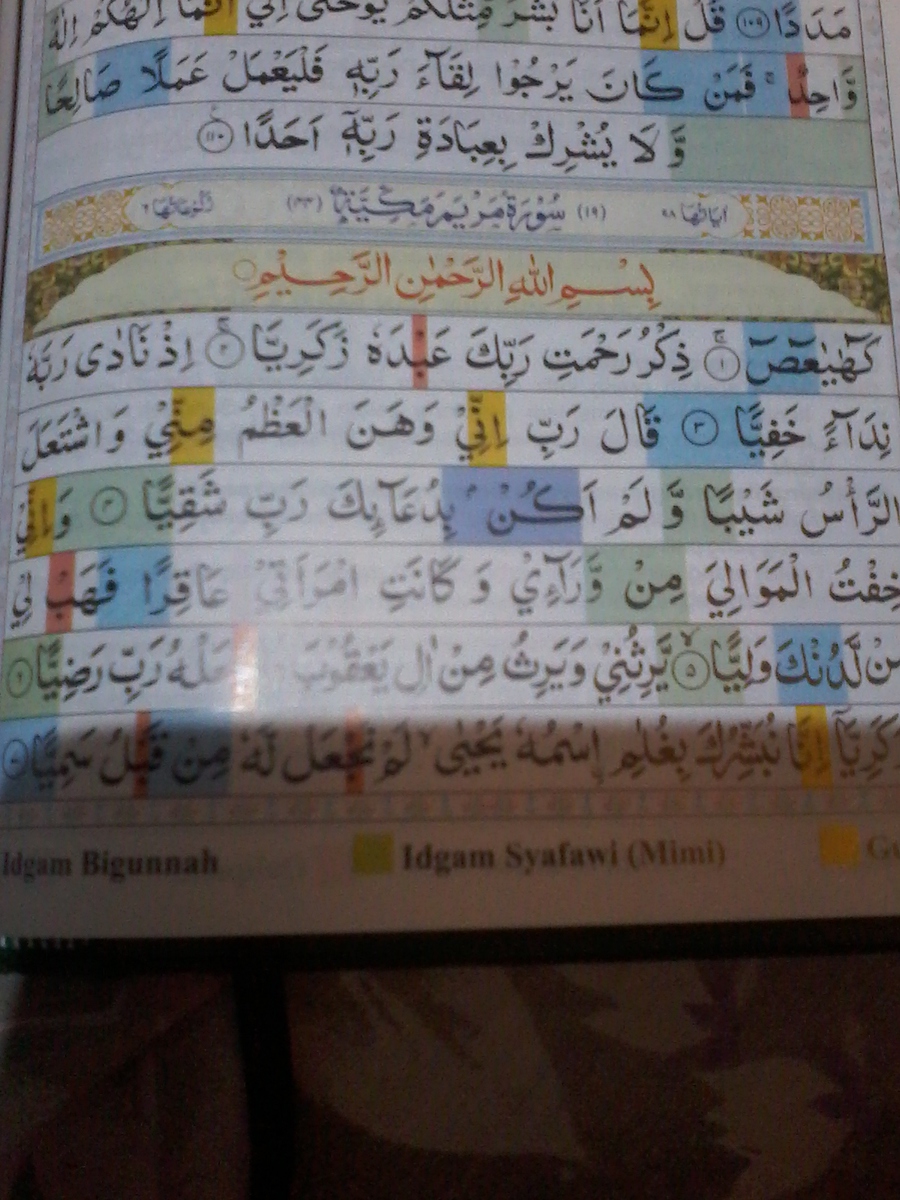 مَدَدًا ۝١٠٩ قُلْ اِنَّمَآ اَنَا بَشَرٌ مِّثْلُكُمْ يُوْحٰٓى اِلَيَّ اَنَّمَآ اِلٰهُكُمْ اِلٰهٌ
وَّاحِدٌ ۚ فَمَنْ كَانَ يَرْجُوْا لِقَاۤءَ رَبِّهٖ فَلْيَعْمَلْ عَمَلًا صَالِحًا
وَّلَا يُشْرِكْ بِعِبَادَةِ رَبِّهٖٓ اَحَدًا ۝١١٠
اٰيَاتُهَا ٩٨ (١٩) سُوْرَةُ مَرْيَمَ مَكِّيَّةٌ رُكُوْعَاتُهَا ٦
بِسْمِ اللّٰهِ الرَّحْمٰنِ الرَّحِيْمِ
كۤهٰيٰعۤصۤ ۝١ ذِكْرُ رَحْمَتِ رَبِّكَ عَبْدَهٗ زَكَرِيَّا ۝٢ اِذْ نَادٰى رَبَّهٗ
نِدَاۤءً خَفِيًّا ۝٣ قَالَ رَبِّ اِنِّيْ وَهَنَ الْعَظْمُ مِنِّيْ وَاشْتَعَلَ
الرَّأْسُ شَيْبًا وَّلَمْ اَكُنْۢ بِدُعَاۤىِٕكَ رَبِّ شَقِيًّا ۝٤ وَاِنِّيْ
خِفْتُ الْمَوَالِيَ مِنْ وَّرَاۤءِيْ وَكَانَتِ امْرَاَتِيْ عَاقِرًا فَهَبْ لِيْ
مِنْ لَّدُنْكَ وَلِيًّا ۝٥ يَّرِثُنِيْ وَيَرِثُ مِنْ اٰلِ يَعْقُوْبَ رَبِّ رَضِيًّا ۝٦
زَكَرِيَّآ اِنَّا نُبَشِّرُكَ بِغُلٰمِ ۨاسْمُهٗ يَحْيٰى لَمْ نَجْعَلْ لَّهٗ مِنْ قَبْلُ سَمِيًّا ۝٧
Idgam Bigunnah Idgam Syafawi (Mimi)